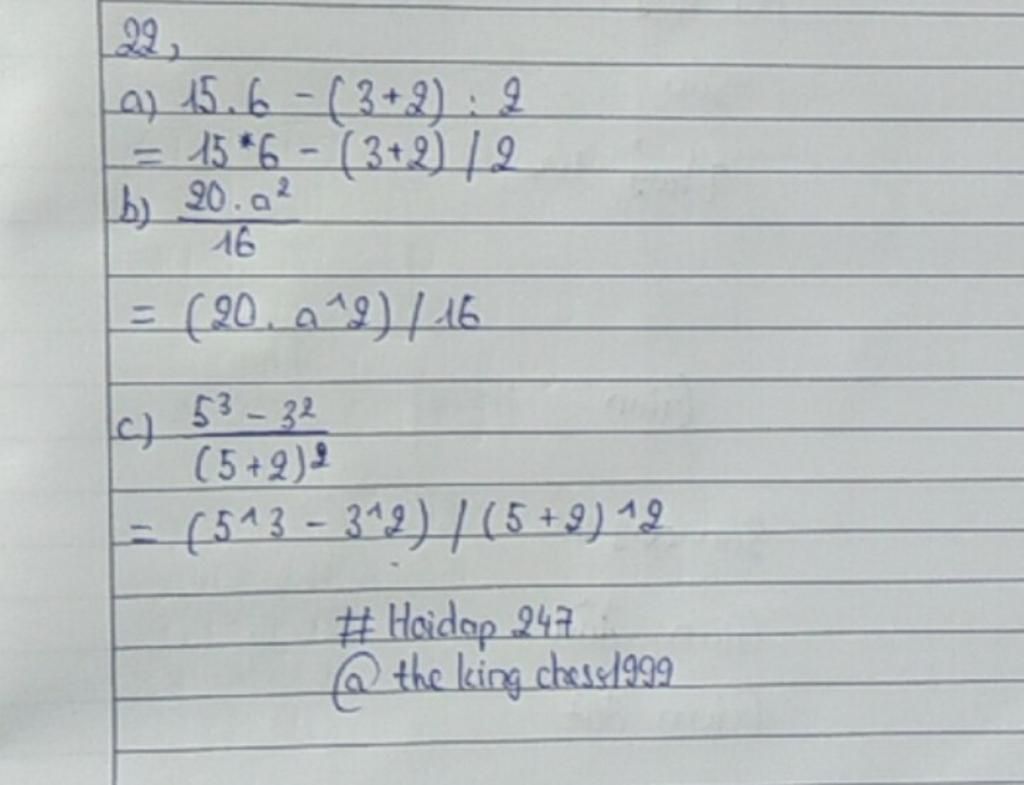 22,
a) 15.6 - (3+2) : 2
= 15*6 - (3+2) / 2
b) 20.a²
16
= (20. a^2) / 16
c) 5³ - 3²
(5+2)²
= (5^3 - 3^2) / (5+2)^2
# Hoidap 247
@ the king chess1999